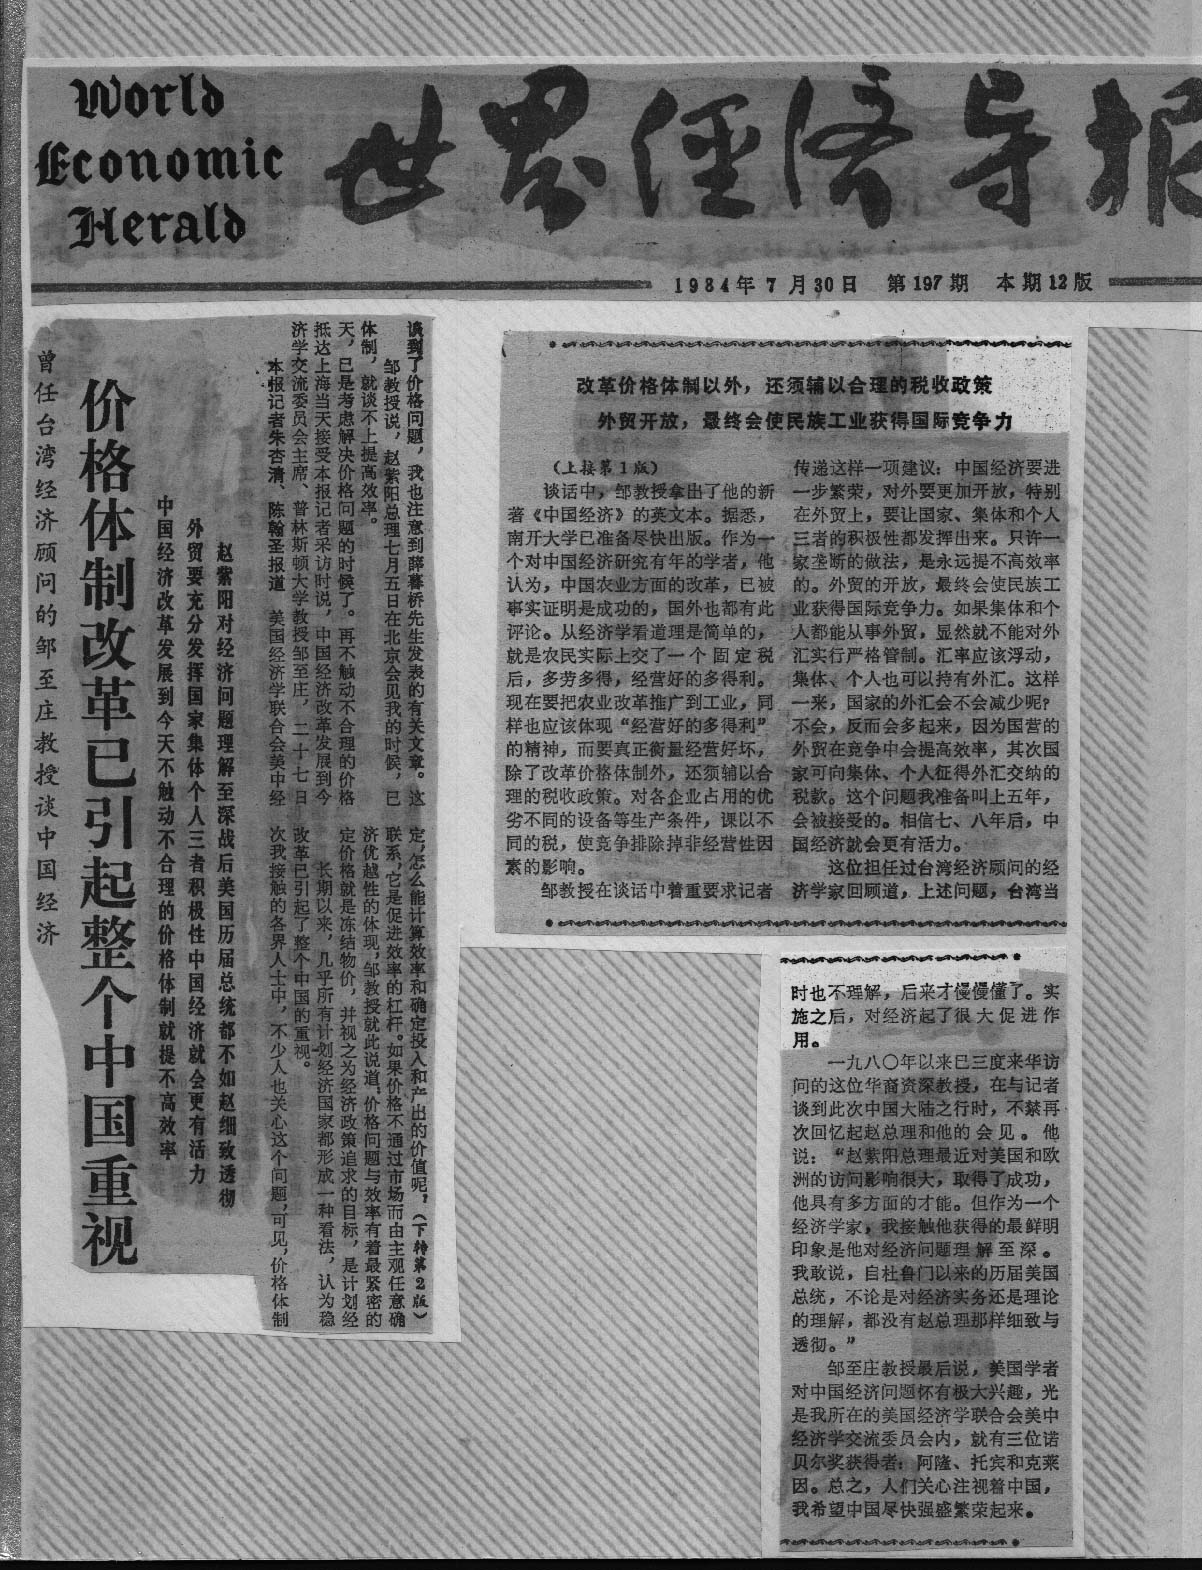 World
Economic
Herald
世界经济导报
1984年7月30日 第197期 本期12版
曾任台湾经济顾问的邹至庄教授谈中国经济
价格体制改革已引起整个中国重视
中国经济改革发展到今天不触动不合理的价格体制就提不高效率
外贸要充分发挥国家集体个人三者积极性中国经济就会更有活力
赵紫阳对经济问题理解至深战后美国历届总统都不如赵细致透彻
本报记者朱杏清、陈翰圣报道 美国经济学联合会美中经
济学交流委员会主席、普林斯顿大学教授邹至庄，二十七日
抵达上海当天接受本报记者采访时说，中国经济改革发展到今
天，已是考虑解决价格问题的时候了。再不触动不合理的价格
体制，就谈不上提高效率。
邹教授说，赵紫阳总理七月五日在北京会见我的时候，已
谈到了价格问题，我也注意到薛暮桥先生发表的有关文章。这
次我接触的各界人士中，不少人也关心这个问题，可见，价格体制
改革已引起了整个中国的重视。
长期以来，几乎所有计划经济国家都形成一种看法，认为稳
定价格就是冻结物价，并视之为经济政策追求的目标，是计划经
济优越性的体现，邹教授就此说道，价格问题与效率有着最紧密的
联系，它是促进效率的杠杆。如果价格不通过市场而由主观任意确
定，怎么能计算效率和确定投入和产出的价值呢？（下转第2版）
改革价格体制以外，还须辅以合理的税收政策
外贸开放，最终会使民族工业获得国际竞争力
（上接第1版）
谈话中，邹教授拿出了他的新
著《中国经济》的英文本。据悉，
南开大学已准备尽快出版。作为一
个对中国经济研究有年的学者，他
认为，中国农业方面的改革，已被
事实证明是成功的，国外也都有此
评论。从经济学看道理是简单的，
就是农民实际上交了一个固定税
后，多劳多得，经营好的多得利。
现在要把农业改革推广到工业，同
样也应该体现“经营好的多得利”
的精神，而要真正衡量经营好坏，
除了改革价格体制外，还须辅以合
理的税收政策。对各企业占用的优
劣不同的设备等生产条件，课以不
同的税，使竞争排除掉非经营性因
素的影响。
邹教授在谈话中着重要求记者
传递这样一项建议：中国经济要进
一步繁荣，对外要更加开放，特别
在外贸上，要让国家、集体和个人
三者的积极性都发挥出来。只许一
家垄断的做法，是永远提不高效率
的。外贸的开放，最终会使民族工
业获得国际竞争力。如果集体和个
人都能从事外贸，显然就不能对外
汇实行严格管制。汇率应该浮动，
集体、个人也可以持有外汇。这样
一来，国家的外汇会不会减少呢？
不会，反而会多起来，因为国营的
外贸在竞争中会提高效率，其次国
家可向集体、个人征得外汇交纳的
税款。这个问题我准备叫上五年，
会被接受的。相信七、八年后，中
国经济就会更有活力。
这位担任过台湾经济顾问的经
济学家回顾道，上述问题，台湾当
时也不理解，后来才慢慢懂了。实
施之后，对经济起了很大促进作
用。
一九八〇年以来已三度来华访
问的这位华裔资深教授，在与记者
谈到此次中国大陆之行时，不禁再
次回忆起赵总理和他的会见。他
说：“赵紫阳总理最近对美国和欧
洲的访问影响很大，取得了成功，
他具有多方面的才能。但作为一个
经济学家，我接触他获得的最鲜明
印象是他对经济问题理解至深。
我敢说，自杜鲁门以来的历届美国
总统，不论是对经济实务还是理论
的理解，都没有赵总理那样细致与
透彻。”
邹至庄教授最后说，美国学者
对中国经济问题怀有极大兴趣，光
是我所在的美国经济学联合会美中
经济学交流委员会内，就有三位诺
贝尔奖获得者：阿隆、托宾和克莱
因。总之，人们关心注视着中国，
我希望中国尽快强盛繁荣起来。